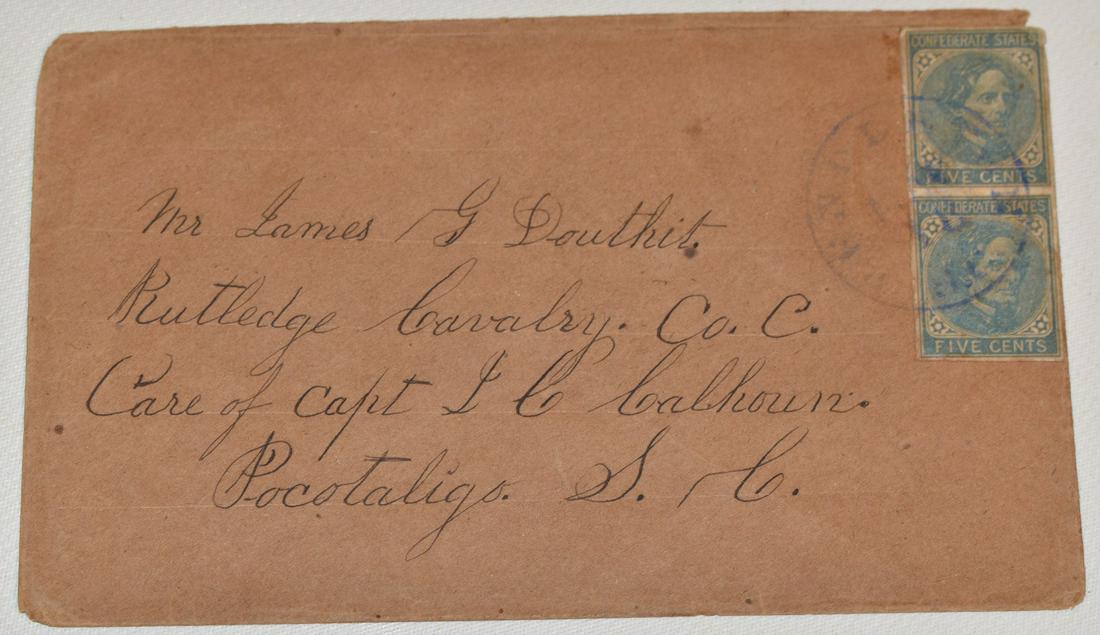 CONFEDERATE STATES
FIVE CENTS
CONFEDERATE STATES
FIVE CENTS
Mr James G Douthit.
Rutledge Cavalry. Co. C.
Care of Capt J C Calhoun.
Pocotaligo. S. C.